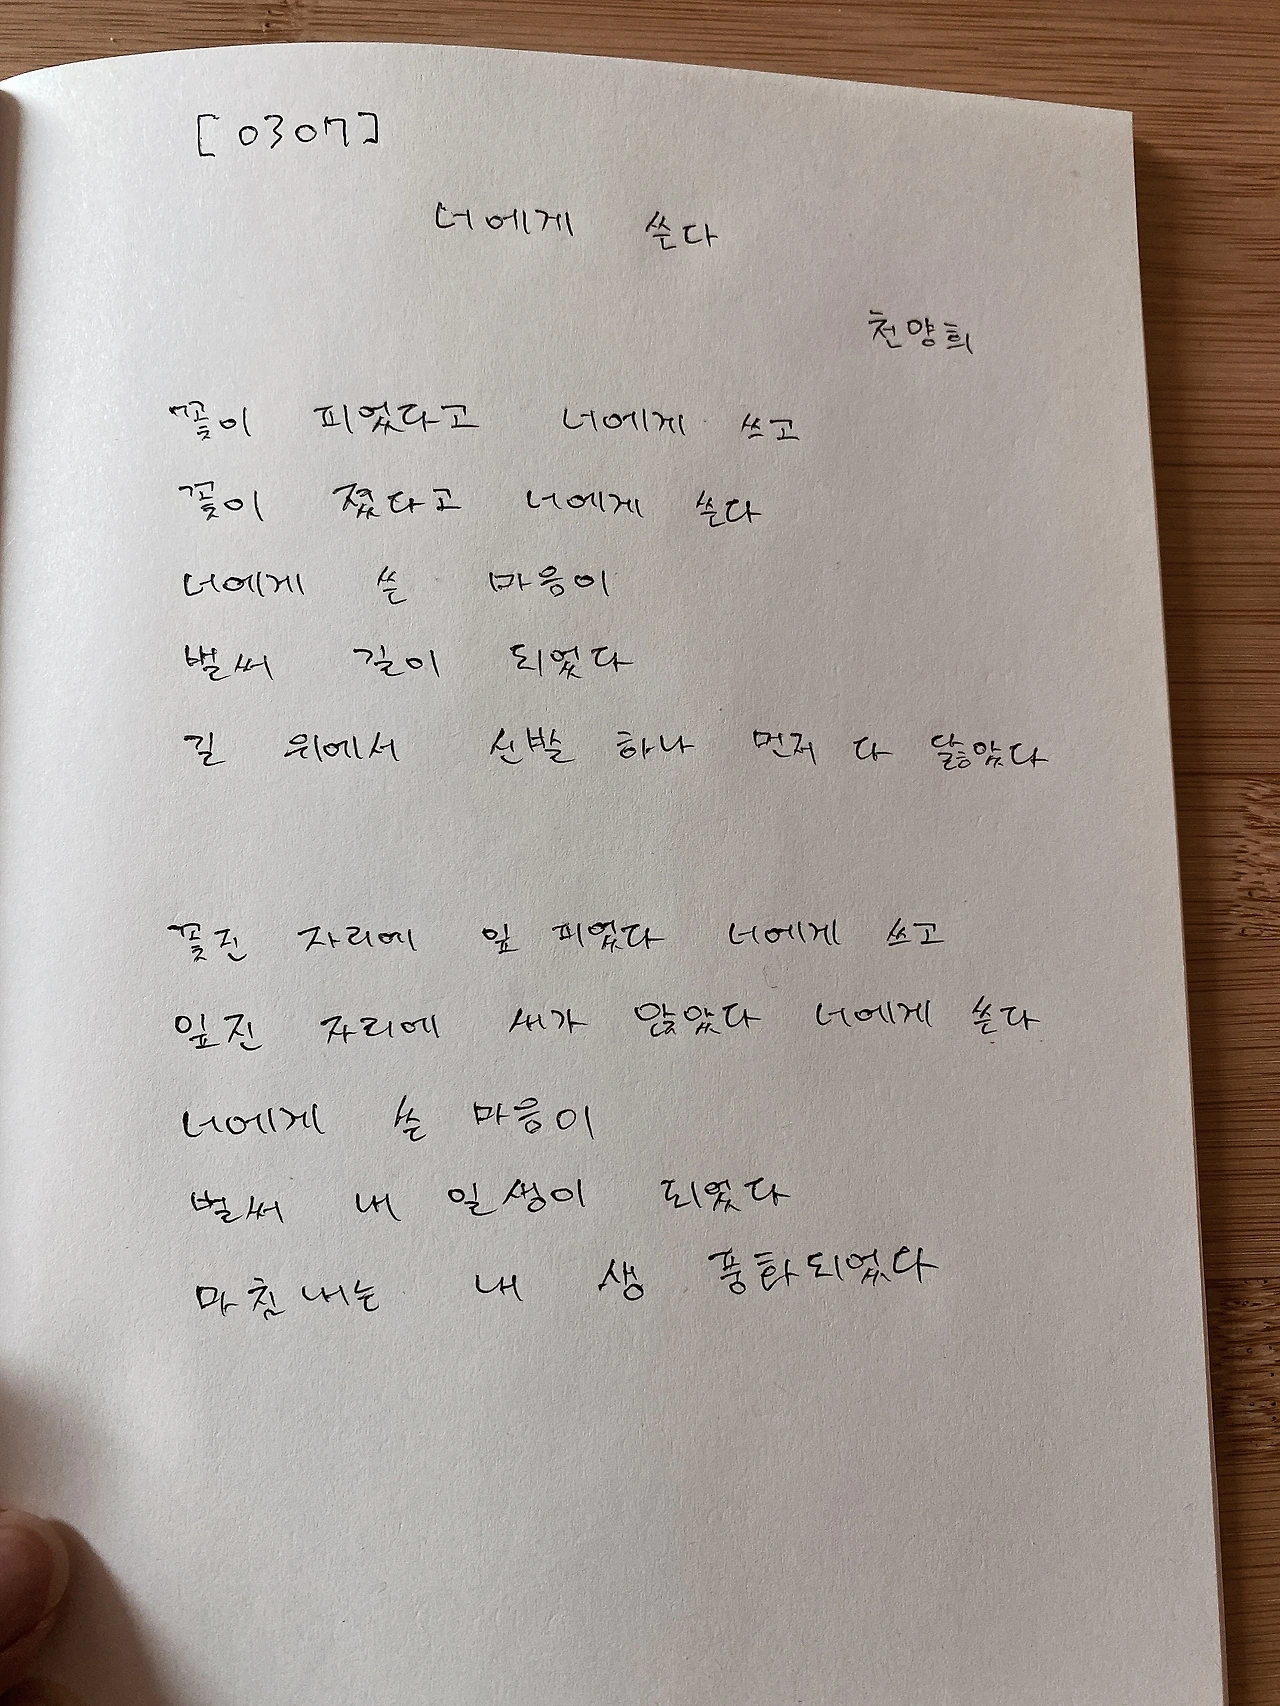 [0307]
너에게 쓴다
천양희
꽃이 피었다고 너에게 쓰고
꽃이 졌다고 너에게 쓴다
너에게 쓴 마음이
벌써 길이 되었다
길 위에서 신발 하나 먼저 다 닳았다
꽃진 자리에 잎 피었다 너에게 쓰고
잎진 자리에 새가 앉았다 너에게 쓴다
너에게 쓴 마음이
벌써 내 일생이 되었다
마침내는 내 생 풍화되었다